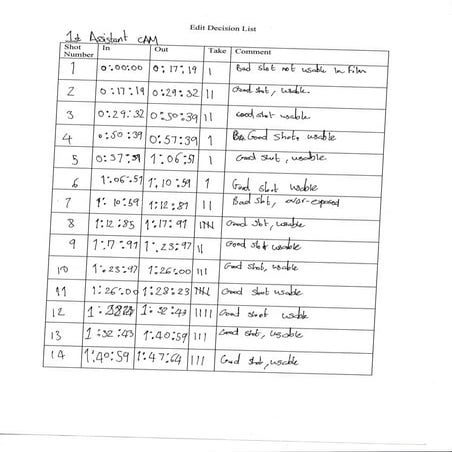 Edit Decision List
1st Assistant CAM
Shot Number In Out Take Comment
1 0:00:00 0:17:19 I Bad shot not usable in film
2 0:17:19 0:29:32 II Good shot, usable.
3 0:29:32 0:50:39 II Good shot usable
4 0:50:39 0:57:39 I Good shot, usable
5 0:57:39 1:06:51 I Good shot, usable
6 1:06:51 1:10:59 I Good shot usable
7 1:10:59 1:12:87 II Bad shot, over-exposed
8 1:12:85 1:17:91 Good shot, usable
9 1:17:91 1:23:97 II Good shot usable
10 1:23:97 1:26:00 III Good shot, usable
11 1:26:00 1:28:23 Good shot usable
12 1:32:43 IIII Good shot usable
13 1:32:43 1:40:59 III Good shot, usable
14 1:40:59 1:47:64 III Good shot, usable